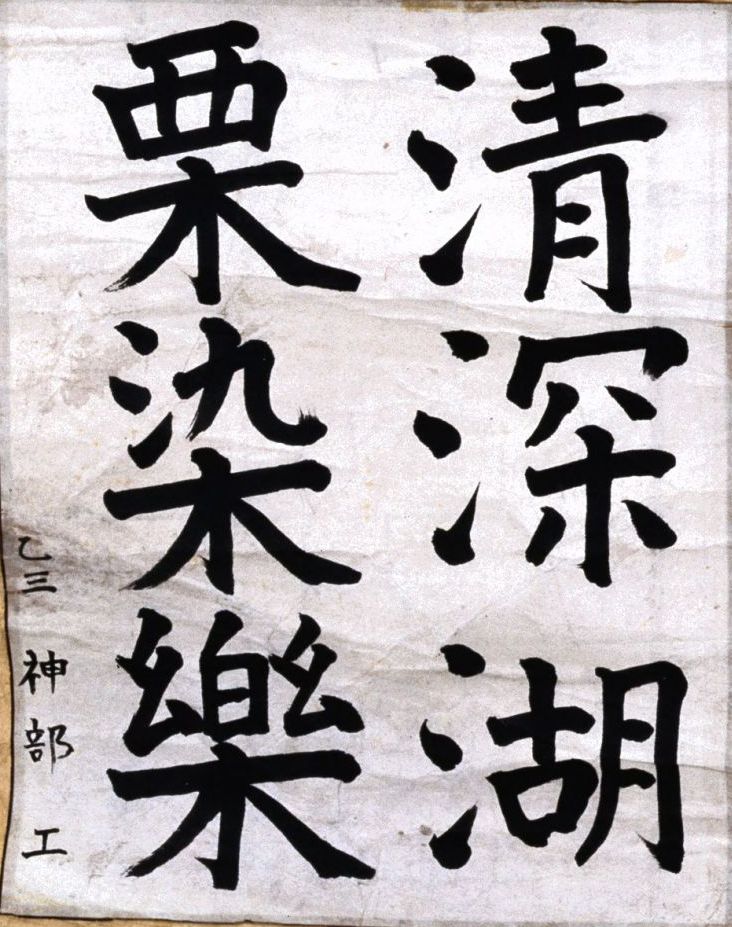 清深湖
栗染樂
乙三 神部 工